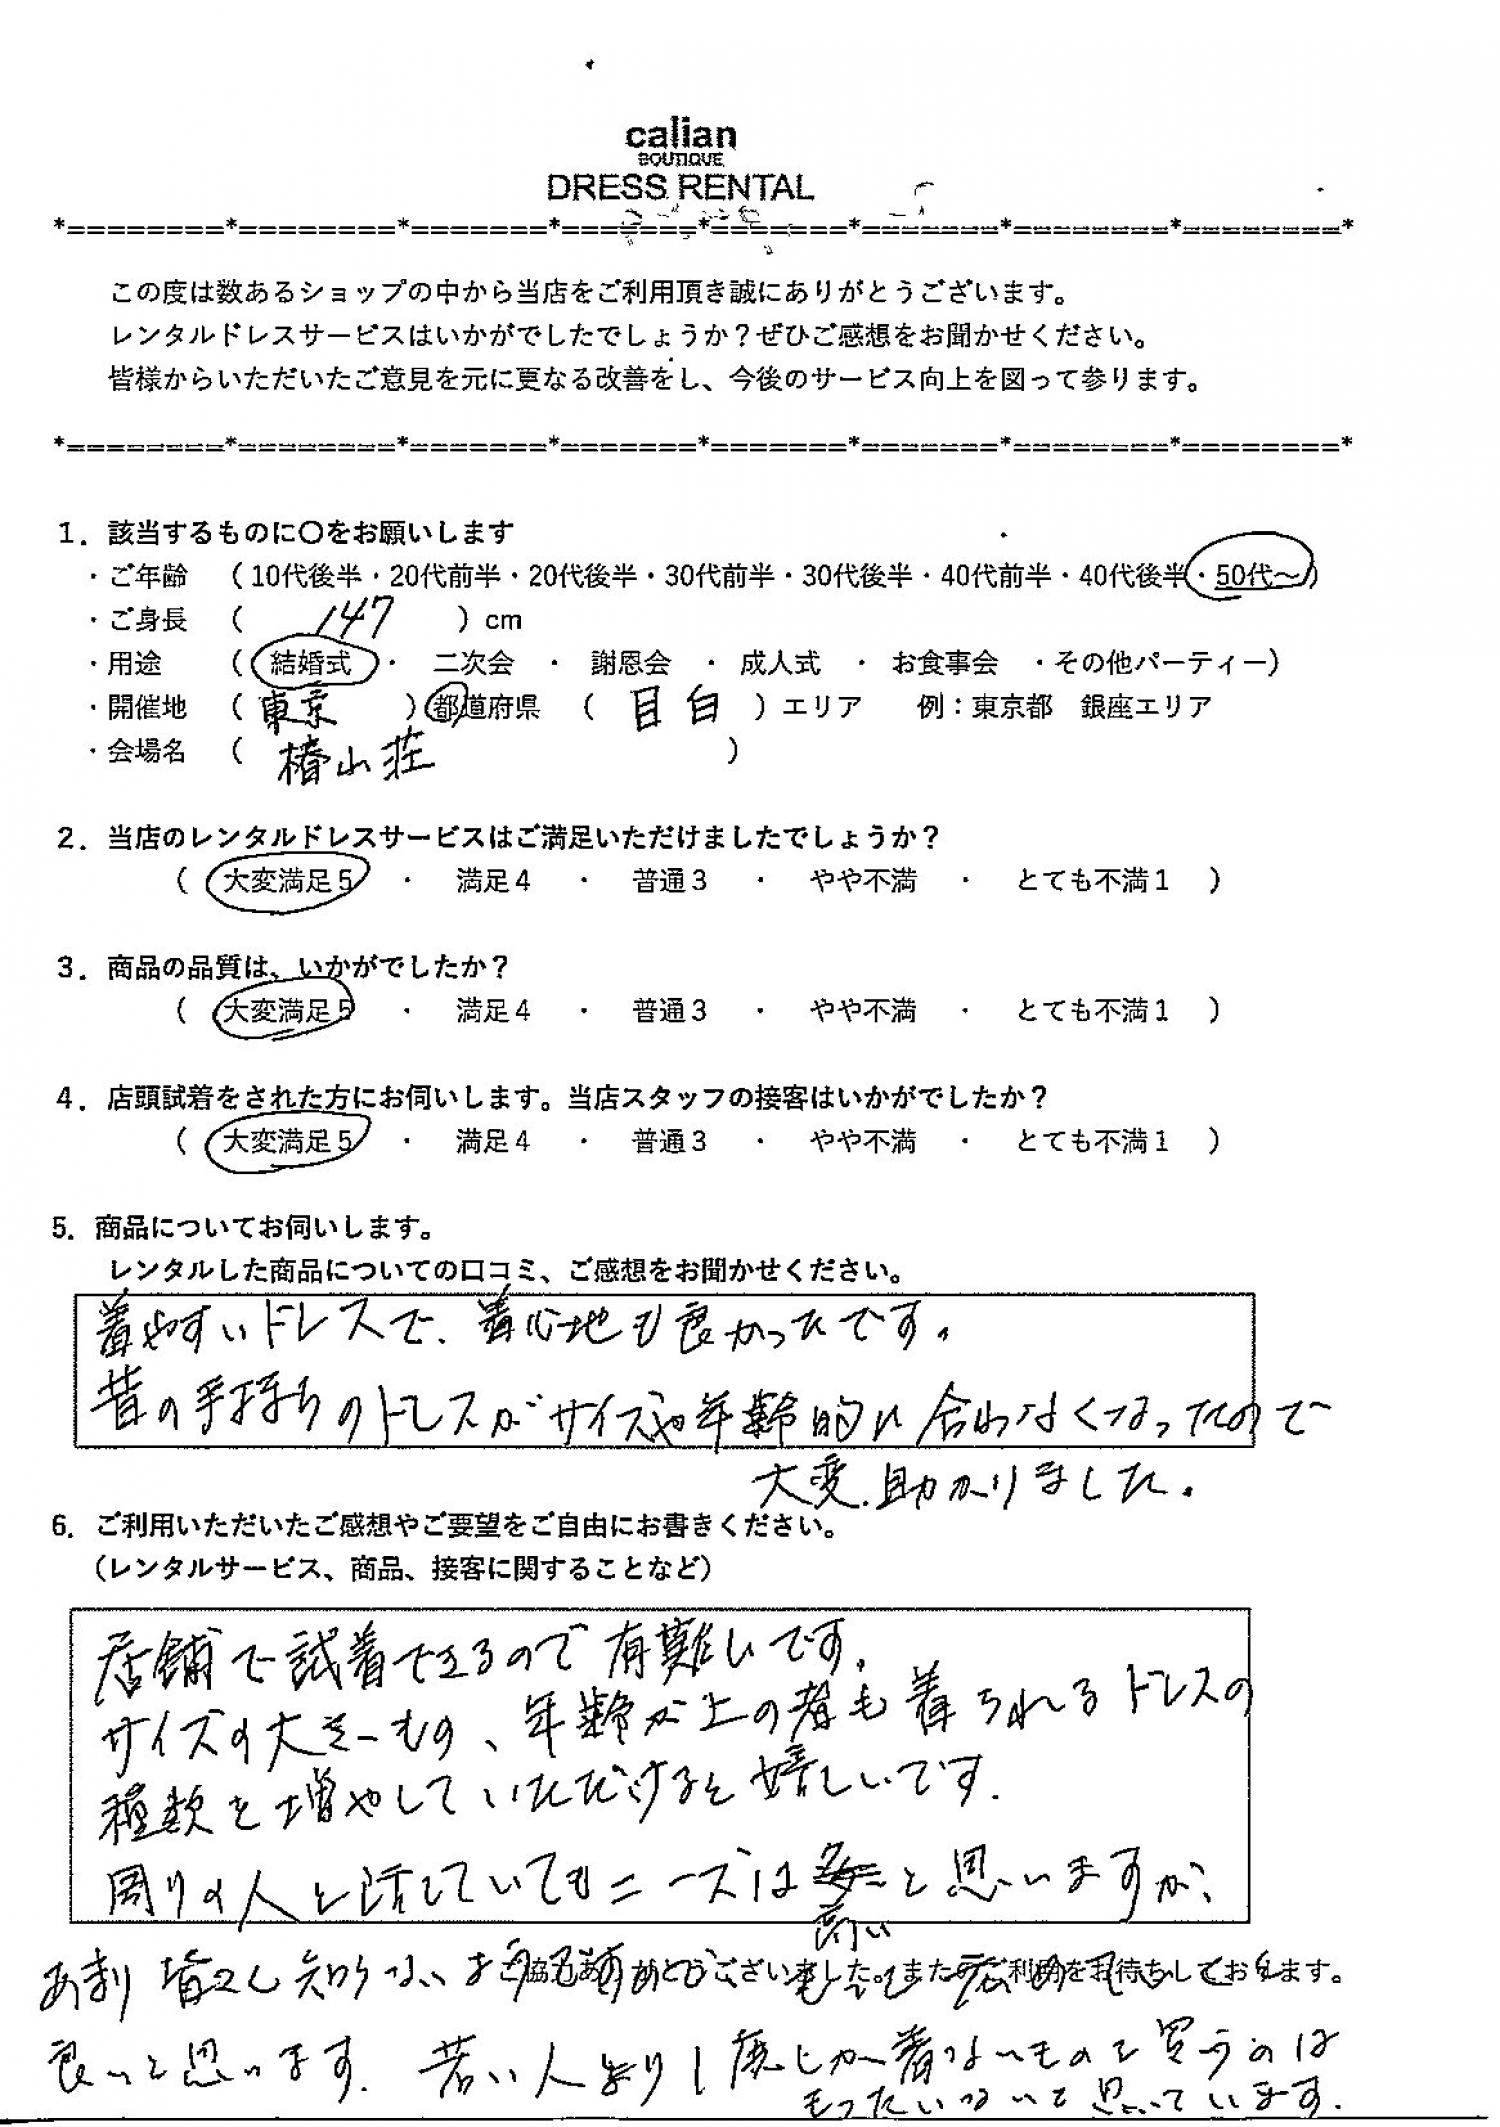 calian
BOUTIQUE
DRESS RENTAL
*========*========*=======*=======*=======*=======*========*========*
この度は数あるショップの中から当店をご利用頂き誠にありがとうございます。
レンタルドレスサービスはいかがでしたでしょうか？ぜひご感想をお聞かせください。
皆様からいただいたご意見を元に更なる改善をし、今後のサービス向上を図って参ります。
*========*========*=======*=======*=======*=======*========*========*
1．該当するものに〇をお願いします
・ご年齢 （10代後半・20代前半・20代後半・30代前半・30代後半・40代前半・40代後半・50代～）
・ご身長 （ 147 ）cm
・用途 （ 結婚式 ・ 二次会 ・ 謝恩会 ・ 成人式 ・ お食事会 ・その他パーティー）
・開催地 （ 東京 ）都道府県 （ 目白 ）エリア 例：東京都 銀座エリア
・会場名 （ 椿山荘 ）
2．当店のレンタルドレスサービスはご満足いただけましたでしょうか？
（ 大変満足5 ・ 満足4 ・ 普通3 ・ やや不満 ・ とても不満1 ）
3．商品の品質は、いかがでしたか？
（ 大変満足5 ・ 満足4 ・ 普通3 ・ やや不満 ・ とても不満1 ）
4．店頭試着をされた方にお伺いします。当店スタッフの接客はいかがでしたか？
（ 大変満足5 ・ 満足4 ・ 普通3 ・ やや不満 ・ とても不満1 ）
5．商品についてお伺いします。
レンタルした商品についての口コミ、ご感想をお聞かせください。
着やすいドレスで、着心地も良かったです。
昔の手持ちのドレスがサイズや年齢的に合わなくなったので
大変助かりました。
6．ご利用いただいたご感想やご要望をご自由にお書きください。
（レンタルサービス、商品、接客に関することなど）
店舗で試着できるので有難いです。
サイズの大きいもの、年齢が上の者も着られるドレスの
種類を増やしていただけると嬉しいです。
周りの人と話していてもニーズはと思いますが、
高い
ご協力ありがとうございました。またのご利用をお待ちしております。
あまり皆さん知らないよう
良いと思います。若い人より1度しか着ないものを買うのは
もったいないと思っています。